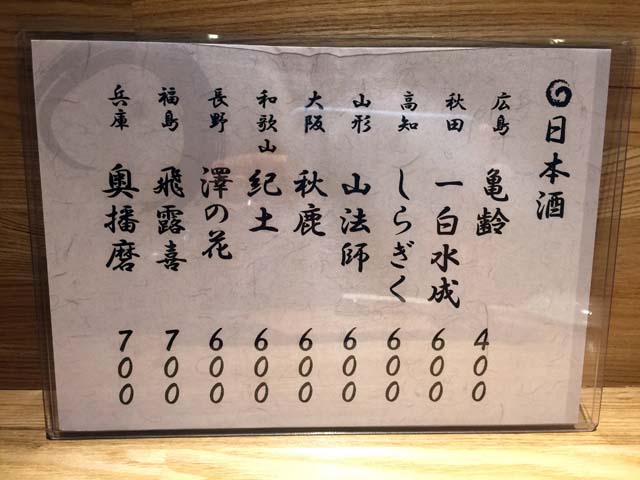 日本酒
広島 亀齢 400
秋田 一白水成 600
高知 しらぎく 600
山形 山法師 600
大阪 秋鹿 600
和歌山 紀土 600
長野 澤の花 600
福島 飛露喜 700
兵庫 奥播磨 700